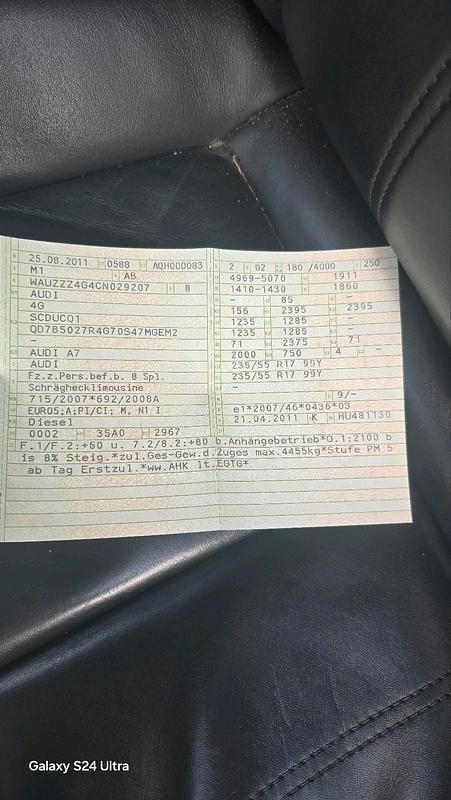 25.08.2011 0588 AQH000083
M1 AB
WAUZZZ4G4CN029207 8
AUDI
4G
SCDUCQ1
QD7B5027R4G70S47MGEM2
-
AUDI A7
AUDI
Fz.z.Pers.bef.b. 8 Spl.
Schräghecklimousine
715/2007*692/2008A
EURO5;A;PI/CI; M, N1 I
Diesel
0002 35A0 2967
2 02 180 /4000 250
4969-5070 1911
1410-1430 1860
- 85 -
156 2395 2395
1235 1285 -
1235 1285 -
71 2375 71
2000 750 4 -
235/55 R17 99Y
235/55 R17 99Y
-
- 9/-
e1*2007/46*0436*03
21.04.2011 K HU481130
F.1/F.2:+60 u. 7.2/8.2:+80 b.Anhängebetrieb*O.1:2100 b
is 8% Steig.*zul.Ges-Gew.d.Zuges max.4455kg*Stufe PM 5
ab Tag Erstzul.*ww.AHK lt.EGTG*
Galaxy S24 Ultra